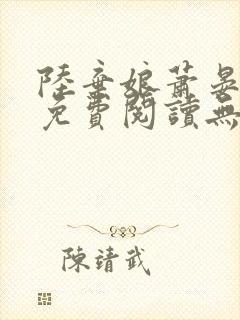 陸棄娘蕭晏
免費閱讀無
陳靖武